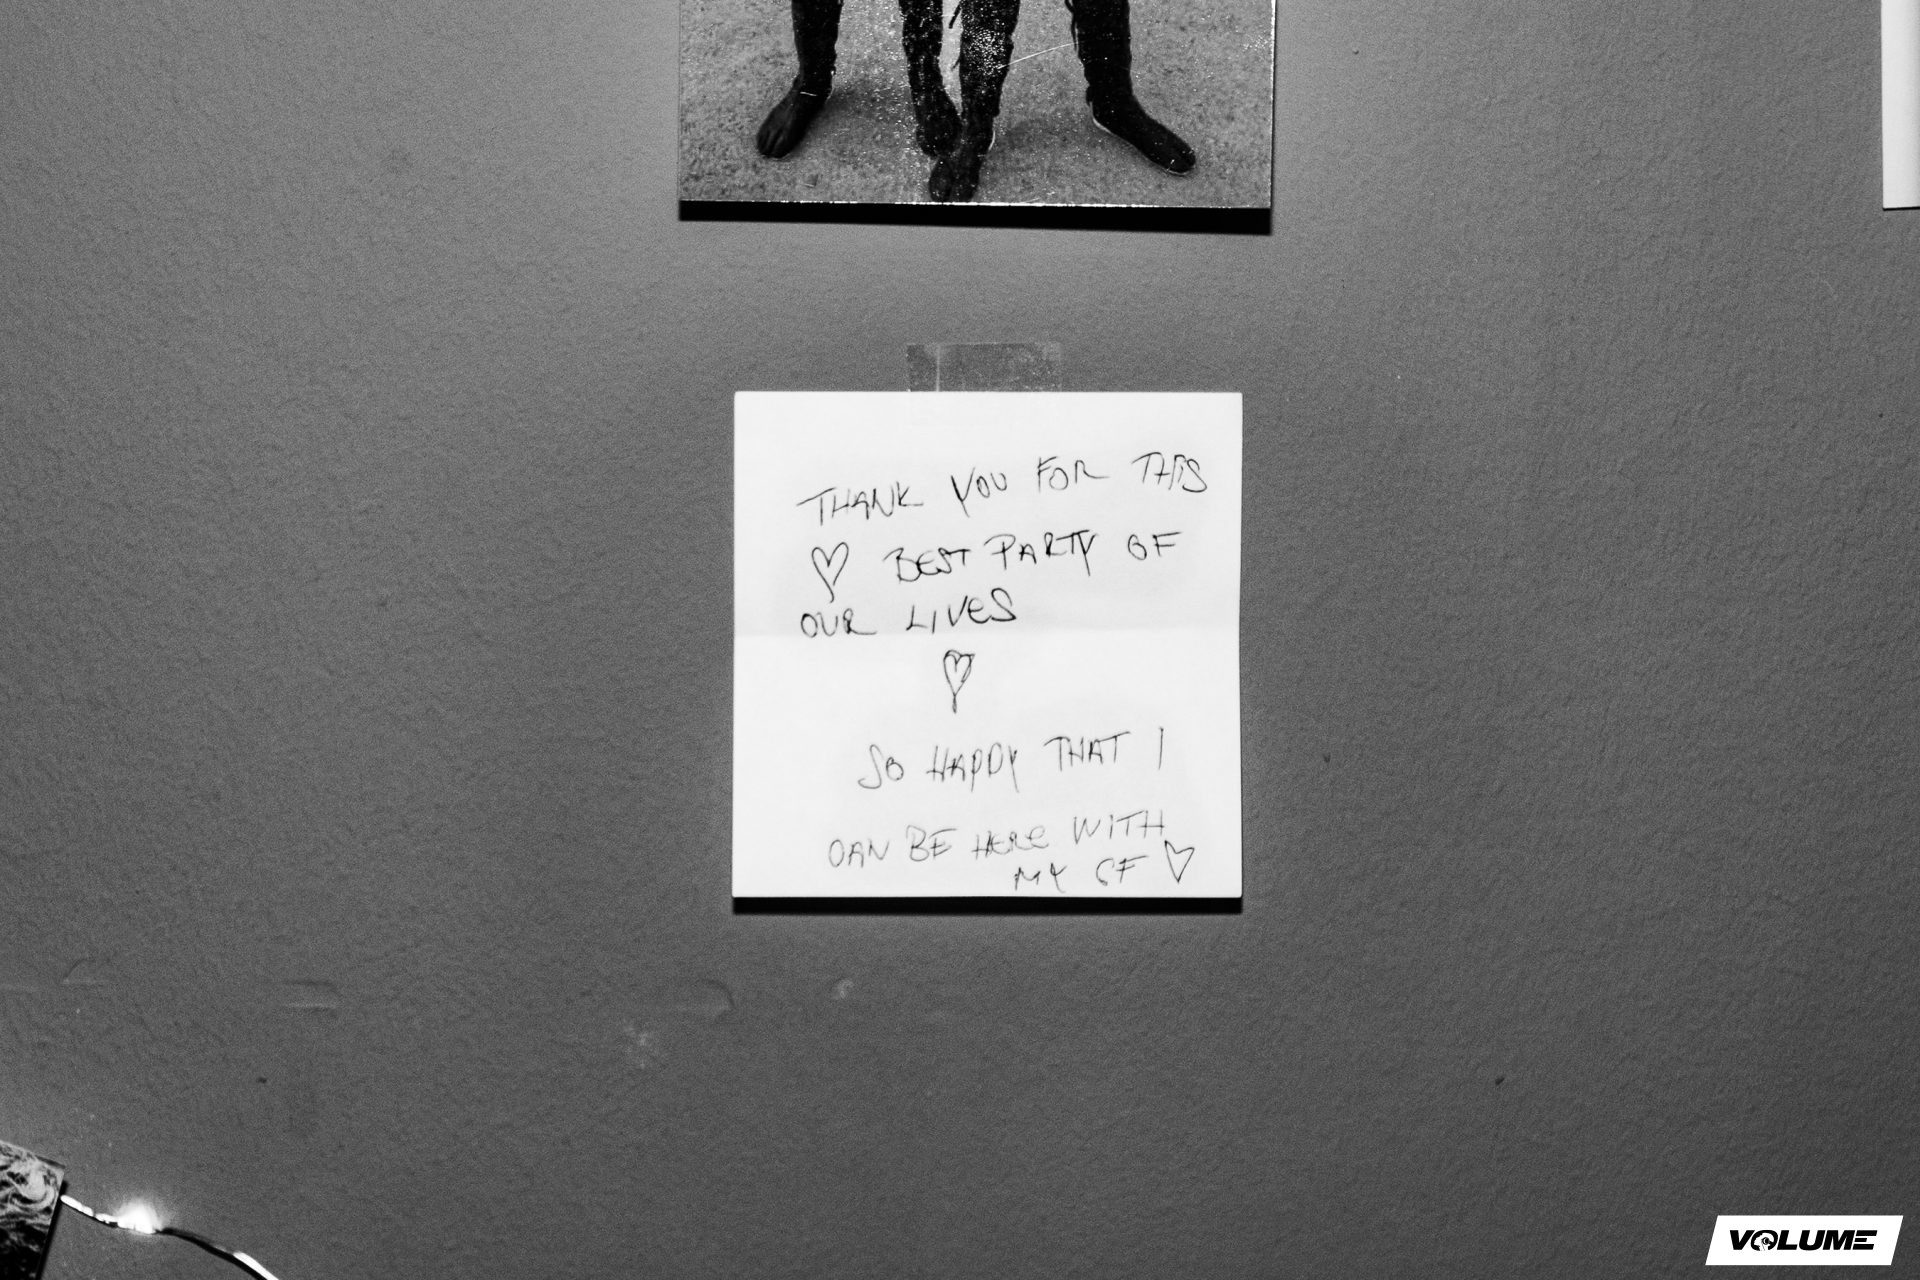 THANK YOU FOR THIS
♡ BEST PARTY OF
OUR LIVES
♡
SO HAPPY THAT I
CAN BE HERE WITH
MY GF ♡
VOLUME